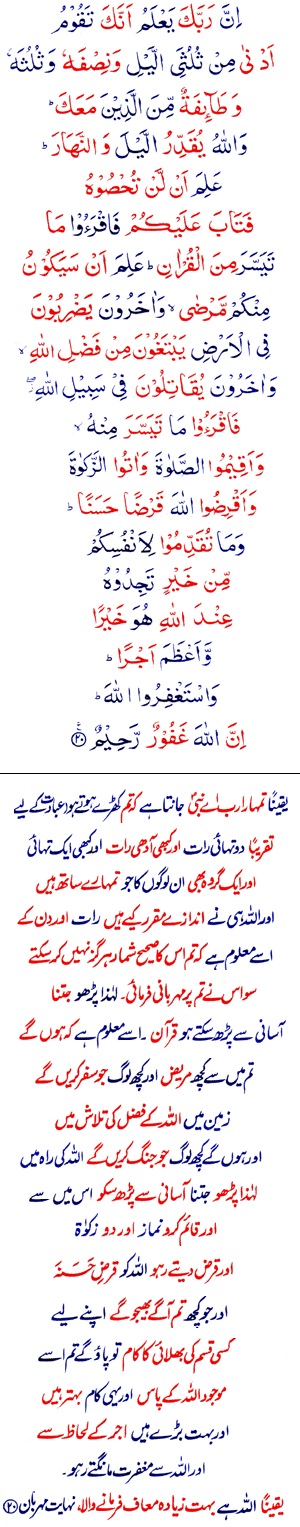 اِنَّ رَبَّكَ يَعْلَمُ اَنَّكَ تَقُوْمُ
اَدْنٰى مِنْ ثُلُثَىِ الَّيْلِ وَنِصْفَهٗ وَثُلُثَهٗ
وَطَآئِفَةٌ مِّنَ الَّذِيْنَ مَعَكَ ؕ
وَاللّٰهُ يُقَدِّرُ الَّيْلَ وَالنَّهَارَ ؕ
عَلِمَ اَنْ لَّنْ تُحْصُوْهُ
فَتَابَ عَلَيْكُمْ فَاقْرَءُوْا مَا
تَيَسَّرَ مِنَ الْقُرْاٰنِ ؕ عَلِمَ اَنْ سَيَكُوْنُ
مِنْكُمْ مَّرْضٰى ۙ وَاٰخَرُوْنَ يَضْرِبُوْنَ
فِى الْاَرْضِ يَبْتَغُوْنَ مِنْ فَضْلِ اللّٰهِ ۙ
وَاٰخَرُوْنَ يُقَاتِلُوْنَ فِىْ سَبِيْلِ اللّٰهِ ۖ
فَاقْرَءُوْا مَا تَيَسَّرَ مِنْهُ ۙ
وَاَقِيْمُوا الصَّلٰوةَ وَاٰتُوا الزَّكٰوةَ
وَاَقْرِضُوا اللّٰهَ قَرْضًا حَسَنًا ؕ
وَمَا تُقَدِّمُوْا لِاَنْفُسِكُمْ
مِّنْ خَيْرٍ تَجِدُوْهُ
عِنْدَ اللّٰهِ هُوَ خَيْرًا
وَّاَعْظَمَ اَجْرًا ؕ
وَاسْتَغْفِرُوا اللّٰهَ ؕ
اِنَّ اللّٰهَ غَفُوْرٌ رَّحِيْمٌ ۟﴿۲۰﴾
یقیناً تمہارا رب اے نبیؐ جانتا ہے کہ تم کھڑے ہوتے ہو عبادت کے لیے
تقریباً دو تہائی رات اور کبھی آدھی رات اور کبھی ایک تہائی
اور ایک گروہ بھی ان لوگوں کا جو تمہارے ساتھ ہیں
اور اللہ ہی نے اندازے مقرر کیے ہیں رات اور دن کے
اسے معلوم ہے کہ تم اس کا صحیح شمار ہرگز نہیں کر سکتے
سو اس نے تم پر مہربانی فرمائی۔ لہٰذا پڑھو جتنا
آسانی سے پڑھ سکتے ہو قرآن ۔ اسے معلوم ہے کہ ہوں گے
تم میں سے کچھ مریض اور کچھ لوگ جو سفر کریں گے
زمین میں اللہ کے فضل کی تلاش میں
اور ہوں گے کچھ لوگ جو جنگ کریں گے اللہ کی راہ میں
لہٰذا پڑھو جتنا آسانی سے پڑھ سکو اس میں سے
اور قائم کرو نماز اور دو زکوٰۃ
اور قرض دیتے رہو اللہ کو قرضِ حَسَنَہ
اور جو کچھ تم آگے بھیجو گے اپنے لیے
کسی قسم کی بھلائی کا کام تو پاؤ گے تم اسے
موجود اللہ کے پاس اور یہی کام بہتر ہیں
اور بہت بڑے ہیں اجر کے لحاظ سے
اور اللہ سے مغفرت مانگتے رہو۔
یقیناً اللہ ہے بہت زیادہ معاف فرمانے والا، نہایت مہربان ﴿۲۰﴾